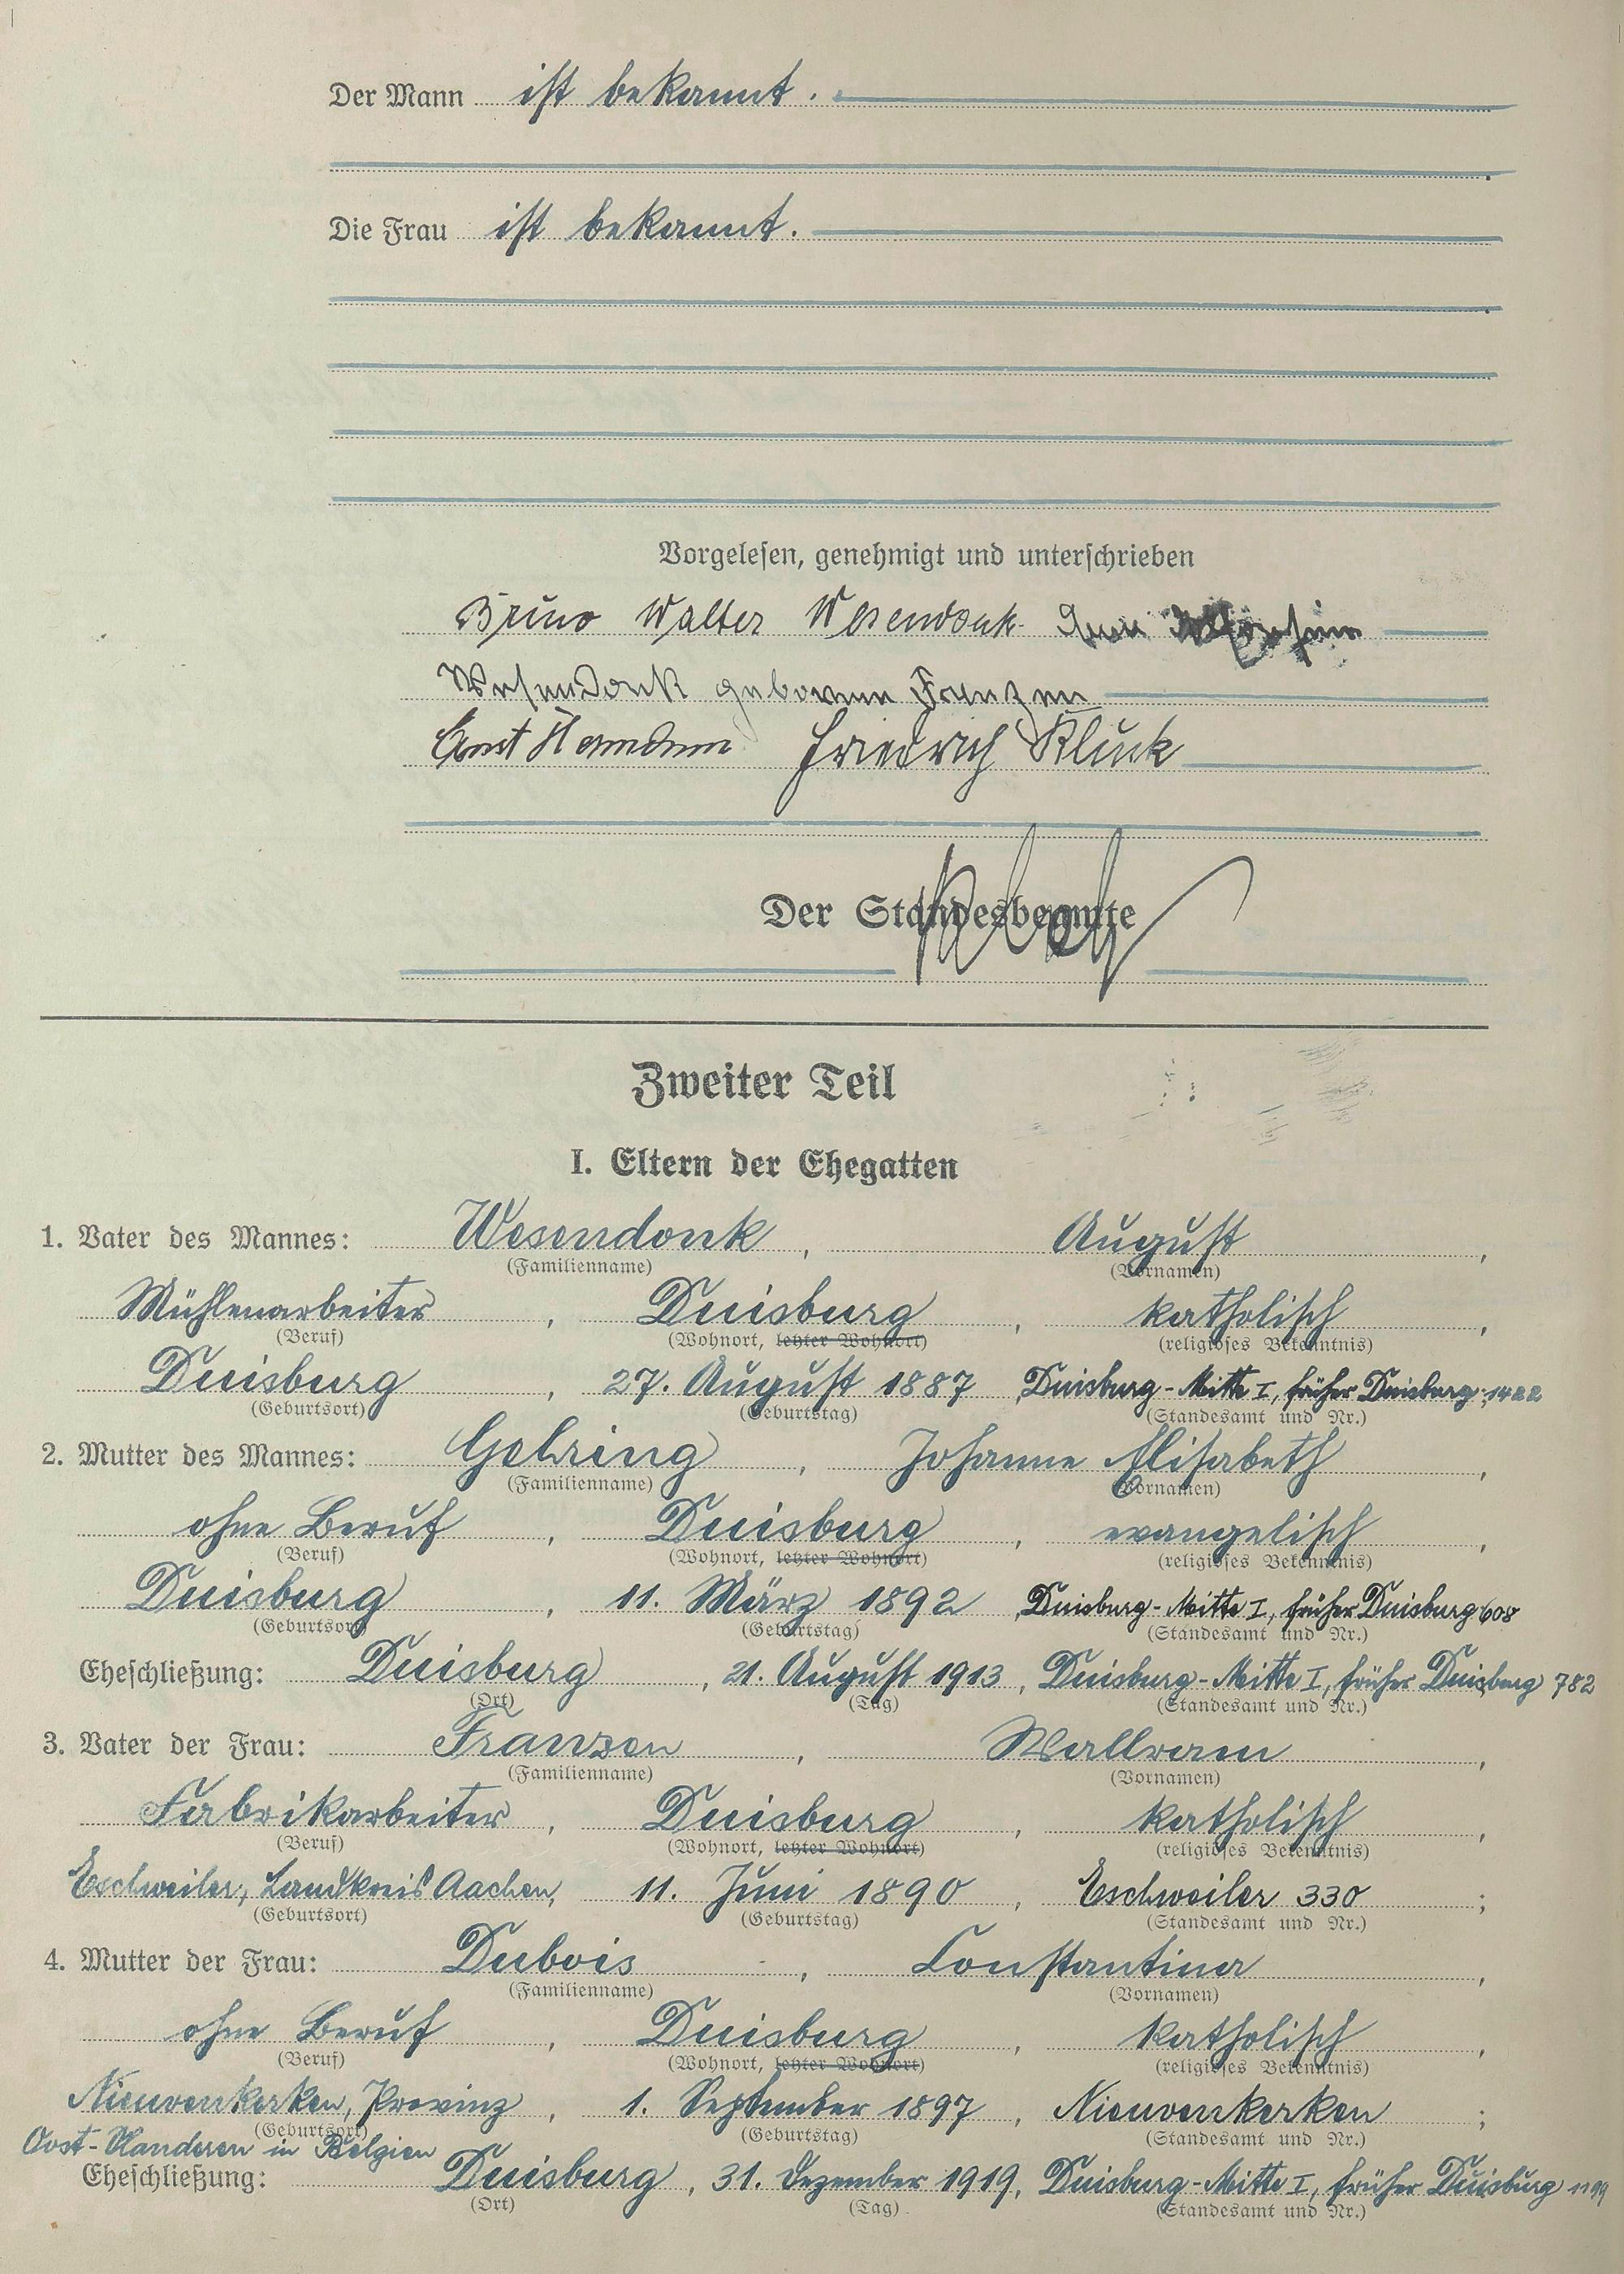 Der Mann ist bekannt.
Die Frau ist bekannt.
Vorgelesen, genehmigt und unterschrieben
Bruno Walter Wesendonk
Wesendonk geborene Franzen
Ernst Friedrich Kluck
Der Standesbeamte
Zweiter Teil
I. Eltern der Ehegatten
1. Vater des Mannes: Wesendonk, August,
(Familienname) (Vornamen)
Mühlenarbeiter, Duisburg, katholisch,
(Beruf) (Wohnort, letzter Wohnort) (religiöses Bekenntnis)
Duisburg, 27. August 1887, Duisburg-Mitte I, früher Duisburg, 1422
(Geburtsort) (Geburtstag) (Standesamt und Nr.)
2. Mutter des Mannes: Gehring, Johanne Elisabeth,
(Familienname) (Vornamen)
ohne Beruf, Duisburg, evangelisch,
(Beruf) (Wohnort, letzter Wohnort) (religiöses Bekenntnis)
Duisburg, 11. März 1892, Duisburg-Mitte I, früher Duisburg 608
(Geburtsort) (Geburtstag) (Standesamt und Nr.)
Eheschließung: Duisburg, 21. August 1913, Duisburg-Mitte I, früher Duisburg 782
(Ort) (Tag) (Standesamt und Nr.)
3. Vater der Frau: Franzen, Wallram,
(Familienname) (Vornamen)
Fabrikarbeiter, Duisburg, katholisch,
(Beruf) (Wohnort, letzter Wohnort) (religiöses Bekenntnis)
Eschweiler, Landkreis Aachen, 11. Juni 1890, Eschweiler 330;
(Geburtsort) (Geburtstag) (Standesamt und Nr.)
4. Mutter der Frau: Dubois, Constantina,
(Familienname) (Vornamen)
ohne Beruf, Duisburg, katholisch,
(Beruf) (Wohnort, letzter Wohnort) (religiöses Bekenntnis)
Nieuwenkerken, Provinz, 1. September 1897, Nieuwenkerken;
(Geburtsort) (Geburtstag) (Standesamt und Nr.)
Oost-Vlanderen in Belgien
Eheschließung: Duisburg, 31. Dezember 1919, Duisburg-Mitte I, früher Duisburg
(Ort) (Tag) (Standesamt und Nr.)